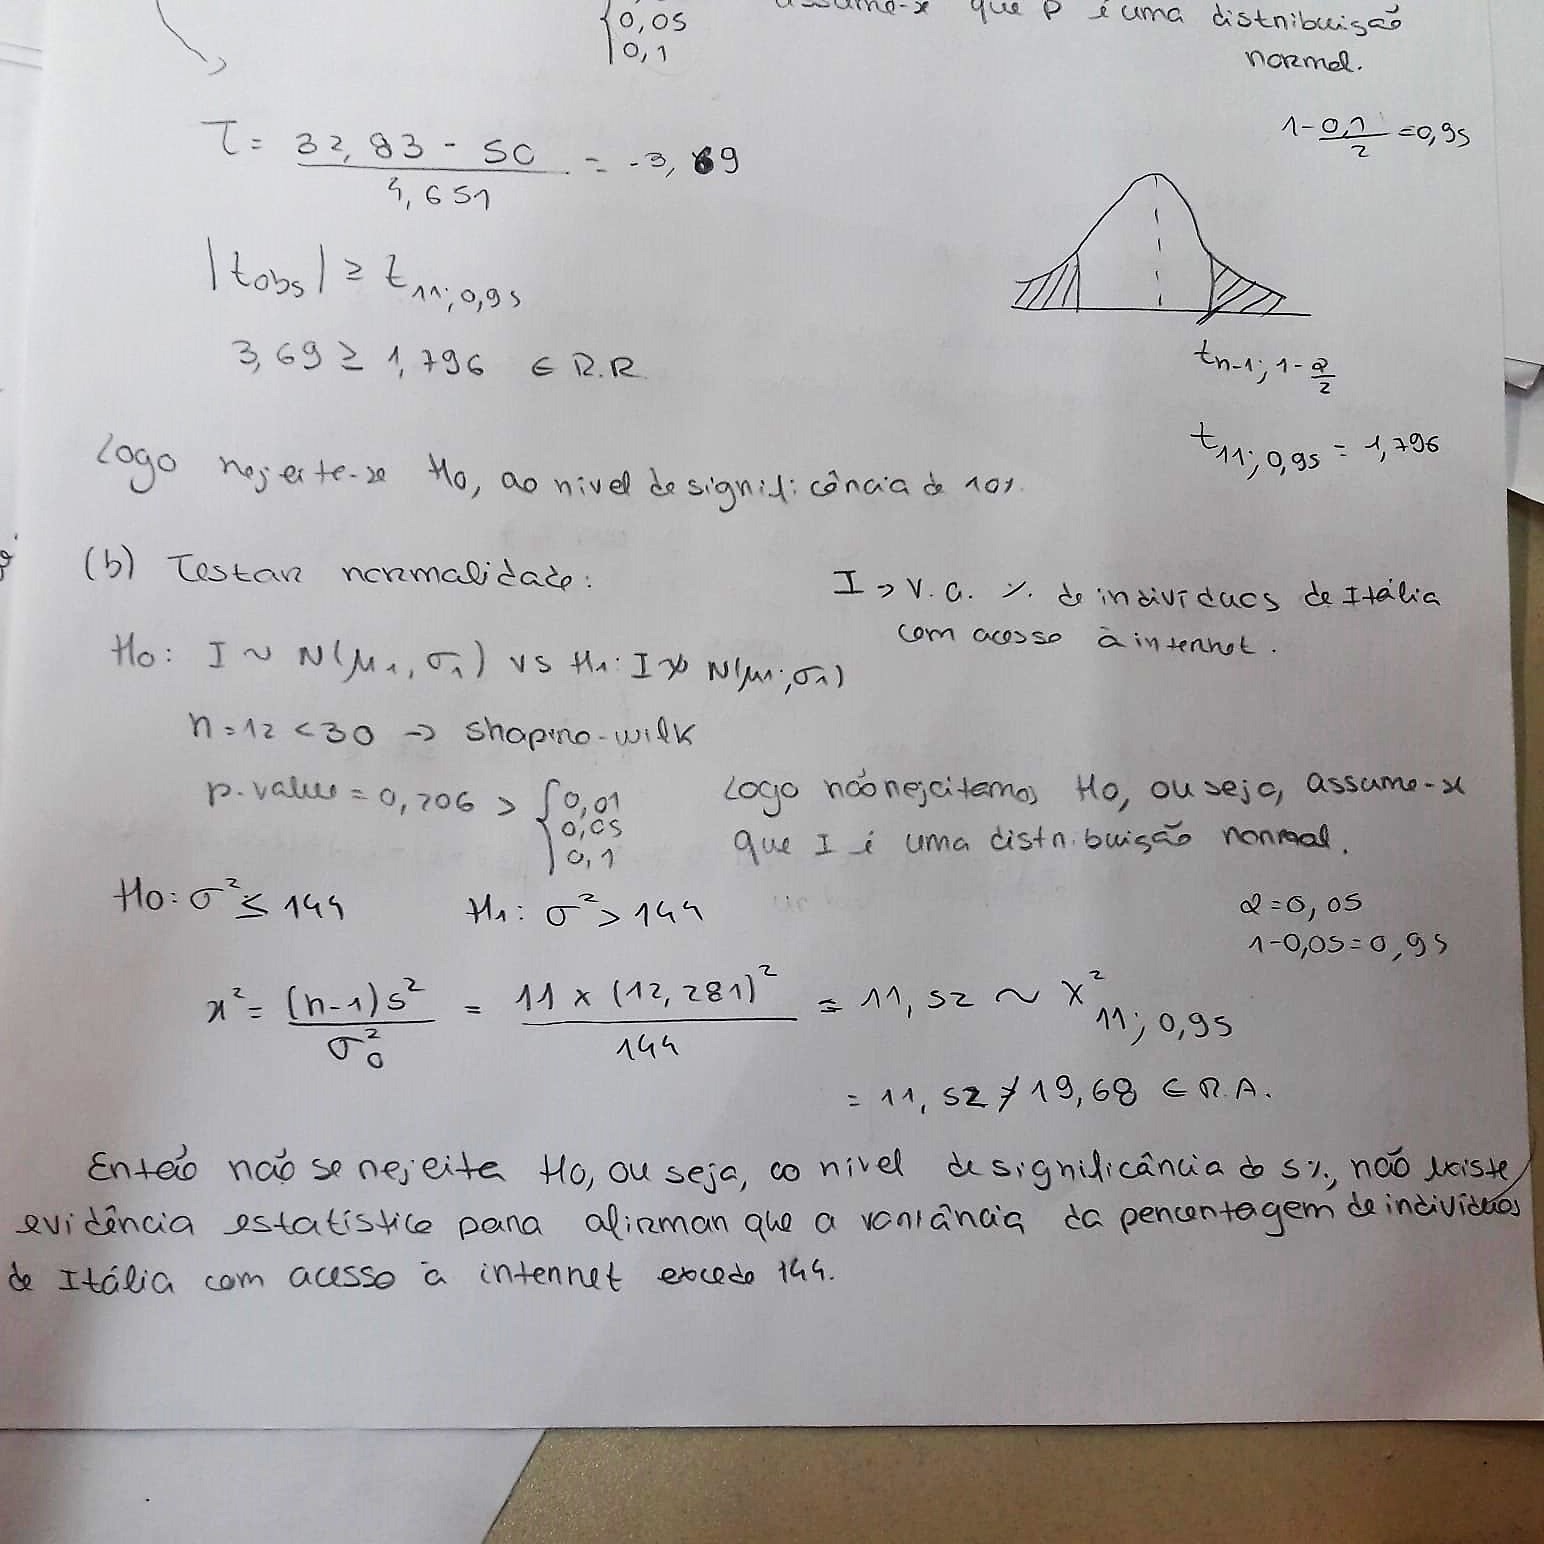 {0,05 assume-se que P é uma distribuição
0,1 normal.
1-0,1/2 =0,95
T = 32,83 - 50 / 4,651 = -3,69
|tobs| ≥ t11;0,95
3,69 ≥ 1,796 ∈ R.R
tn-1; 1-α/2
t11; 0,95 = 1,796
Logo rejeita-se H0, ao nível de significância de 10%.
(b) Testar normalidade:
I → v.a. % de indivíduos de Itália
com acesso à internet.
H0: I ~ N(μ1, σ1) vs H1: I ≁ N(μ1; σ1)
n = 12 < 30 → Shapiro-wilk
p-value = 0,206 > {0,01 0,05 0,1
Logo não rejeitamos H0, ou seja, assume-se
que I é uma distribuição normal.
H0: σ² ≤ 144 H1: σ² > 144
α = 0,05
1-0,05 = 0,95
x² = (n-1)s² / σ²0 = 11 x (12,281)² / 144 = 11,52 ~ X² 11; 0,95
= 11,52 ≯ 19,68 ∈ R.A.
Então não se rejeita H0, ou seja, ao nível de significância de 5%, não existe
evidência estatística para afirmar que a variância da percentagem de indivíduos
de Itália com acesso à internet excede 144.